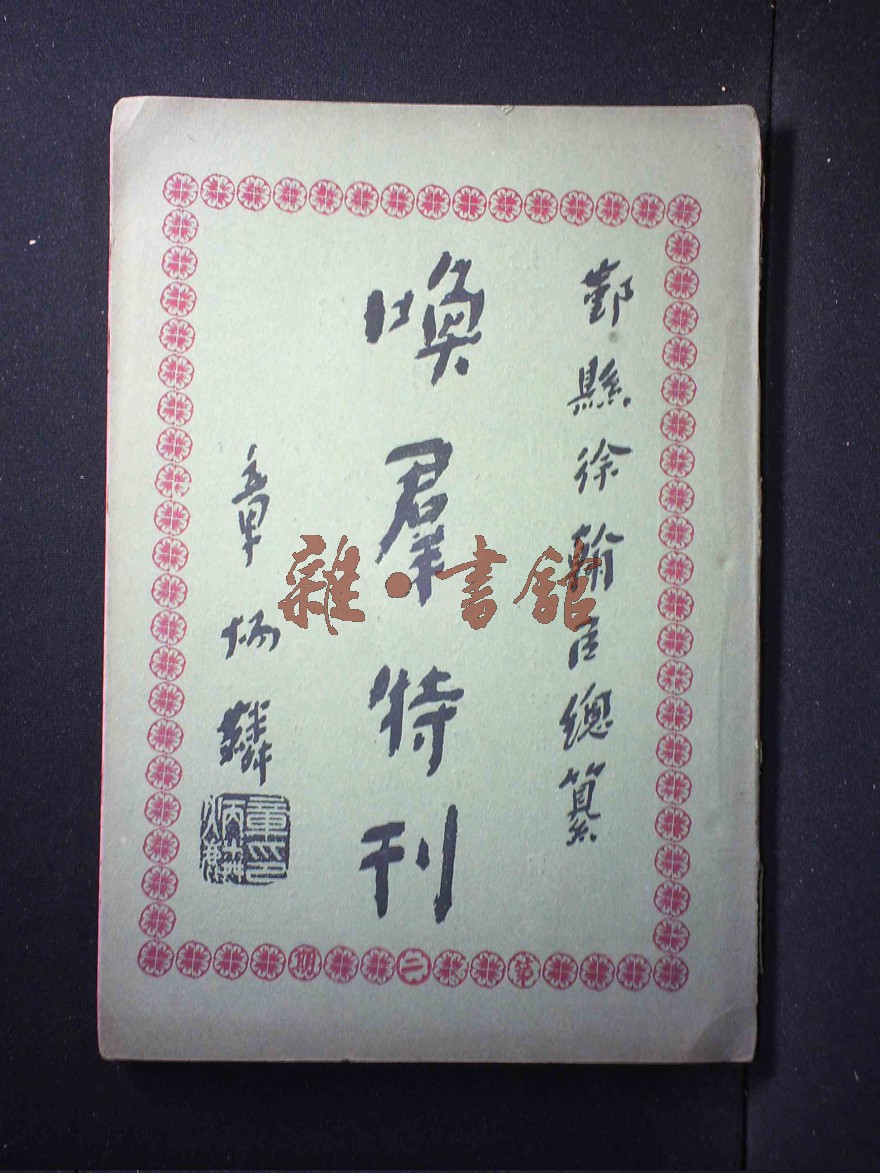 鄞縣徐翰臣總纂
喚羣特刊
章炳麟
第二期
雜·書館